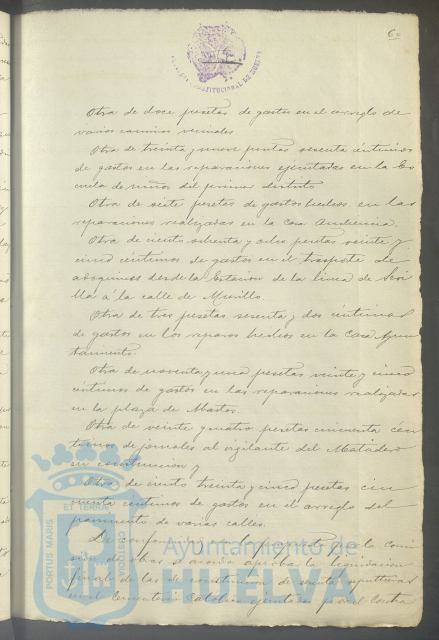 60
Otra de doce pesetas de gastos en el arreglo de
varios caminos vecinales
Otra de treinta y nueve pesetas sesenta céntimos
de gastos en las reparaciones ejecutadas en la Es
cuela de niños del primer distrito
Otra de siete pesetas de gastos hechos en las
reparaciones realizadas en la Casa Audiencia.
Otra de ciento setenta y ocho pesetas veinte y
cinco céntimos de gastos en el trasporte de
adoquines desde la Estacion de la linea de Sevi
lla á la calle de Murillo.
Otra de tres pesetas sesenta y dos céntimos
de gastos en los reparos hechos en la Casa Ayun
tamiento.
Otra de noventa y una pesetas veinte y cinco
céntimos de gastos en las reparaciones realizadas
en la plaza de Abastos.
Otra de veinte y cuatro pesetas cincuenta cén
timos de jornales al vigilante del Matadero
en construccion y
Otra de ciento treinta y cinco pesetas cin
cuenta céntimos de gastos en el arreglo del
pavimento de varias calles.
De conformidad con lo propuesto por la comi
sion de obras se acordó aprobar la liquidacion
final de las de construccion de sepulturas
en el Cementerio Católico ejecutadas por el Contra
PORTUS MARIS
ET TERRAE
CUSTODIA
Ayuntamiento de
HUELVA